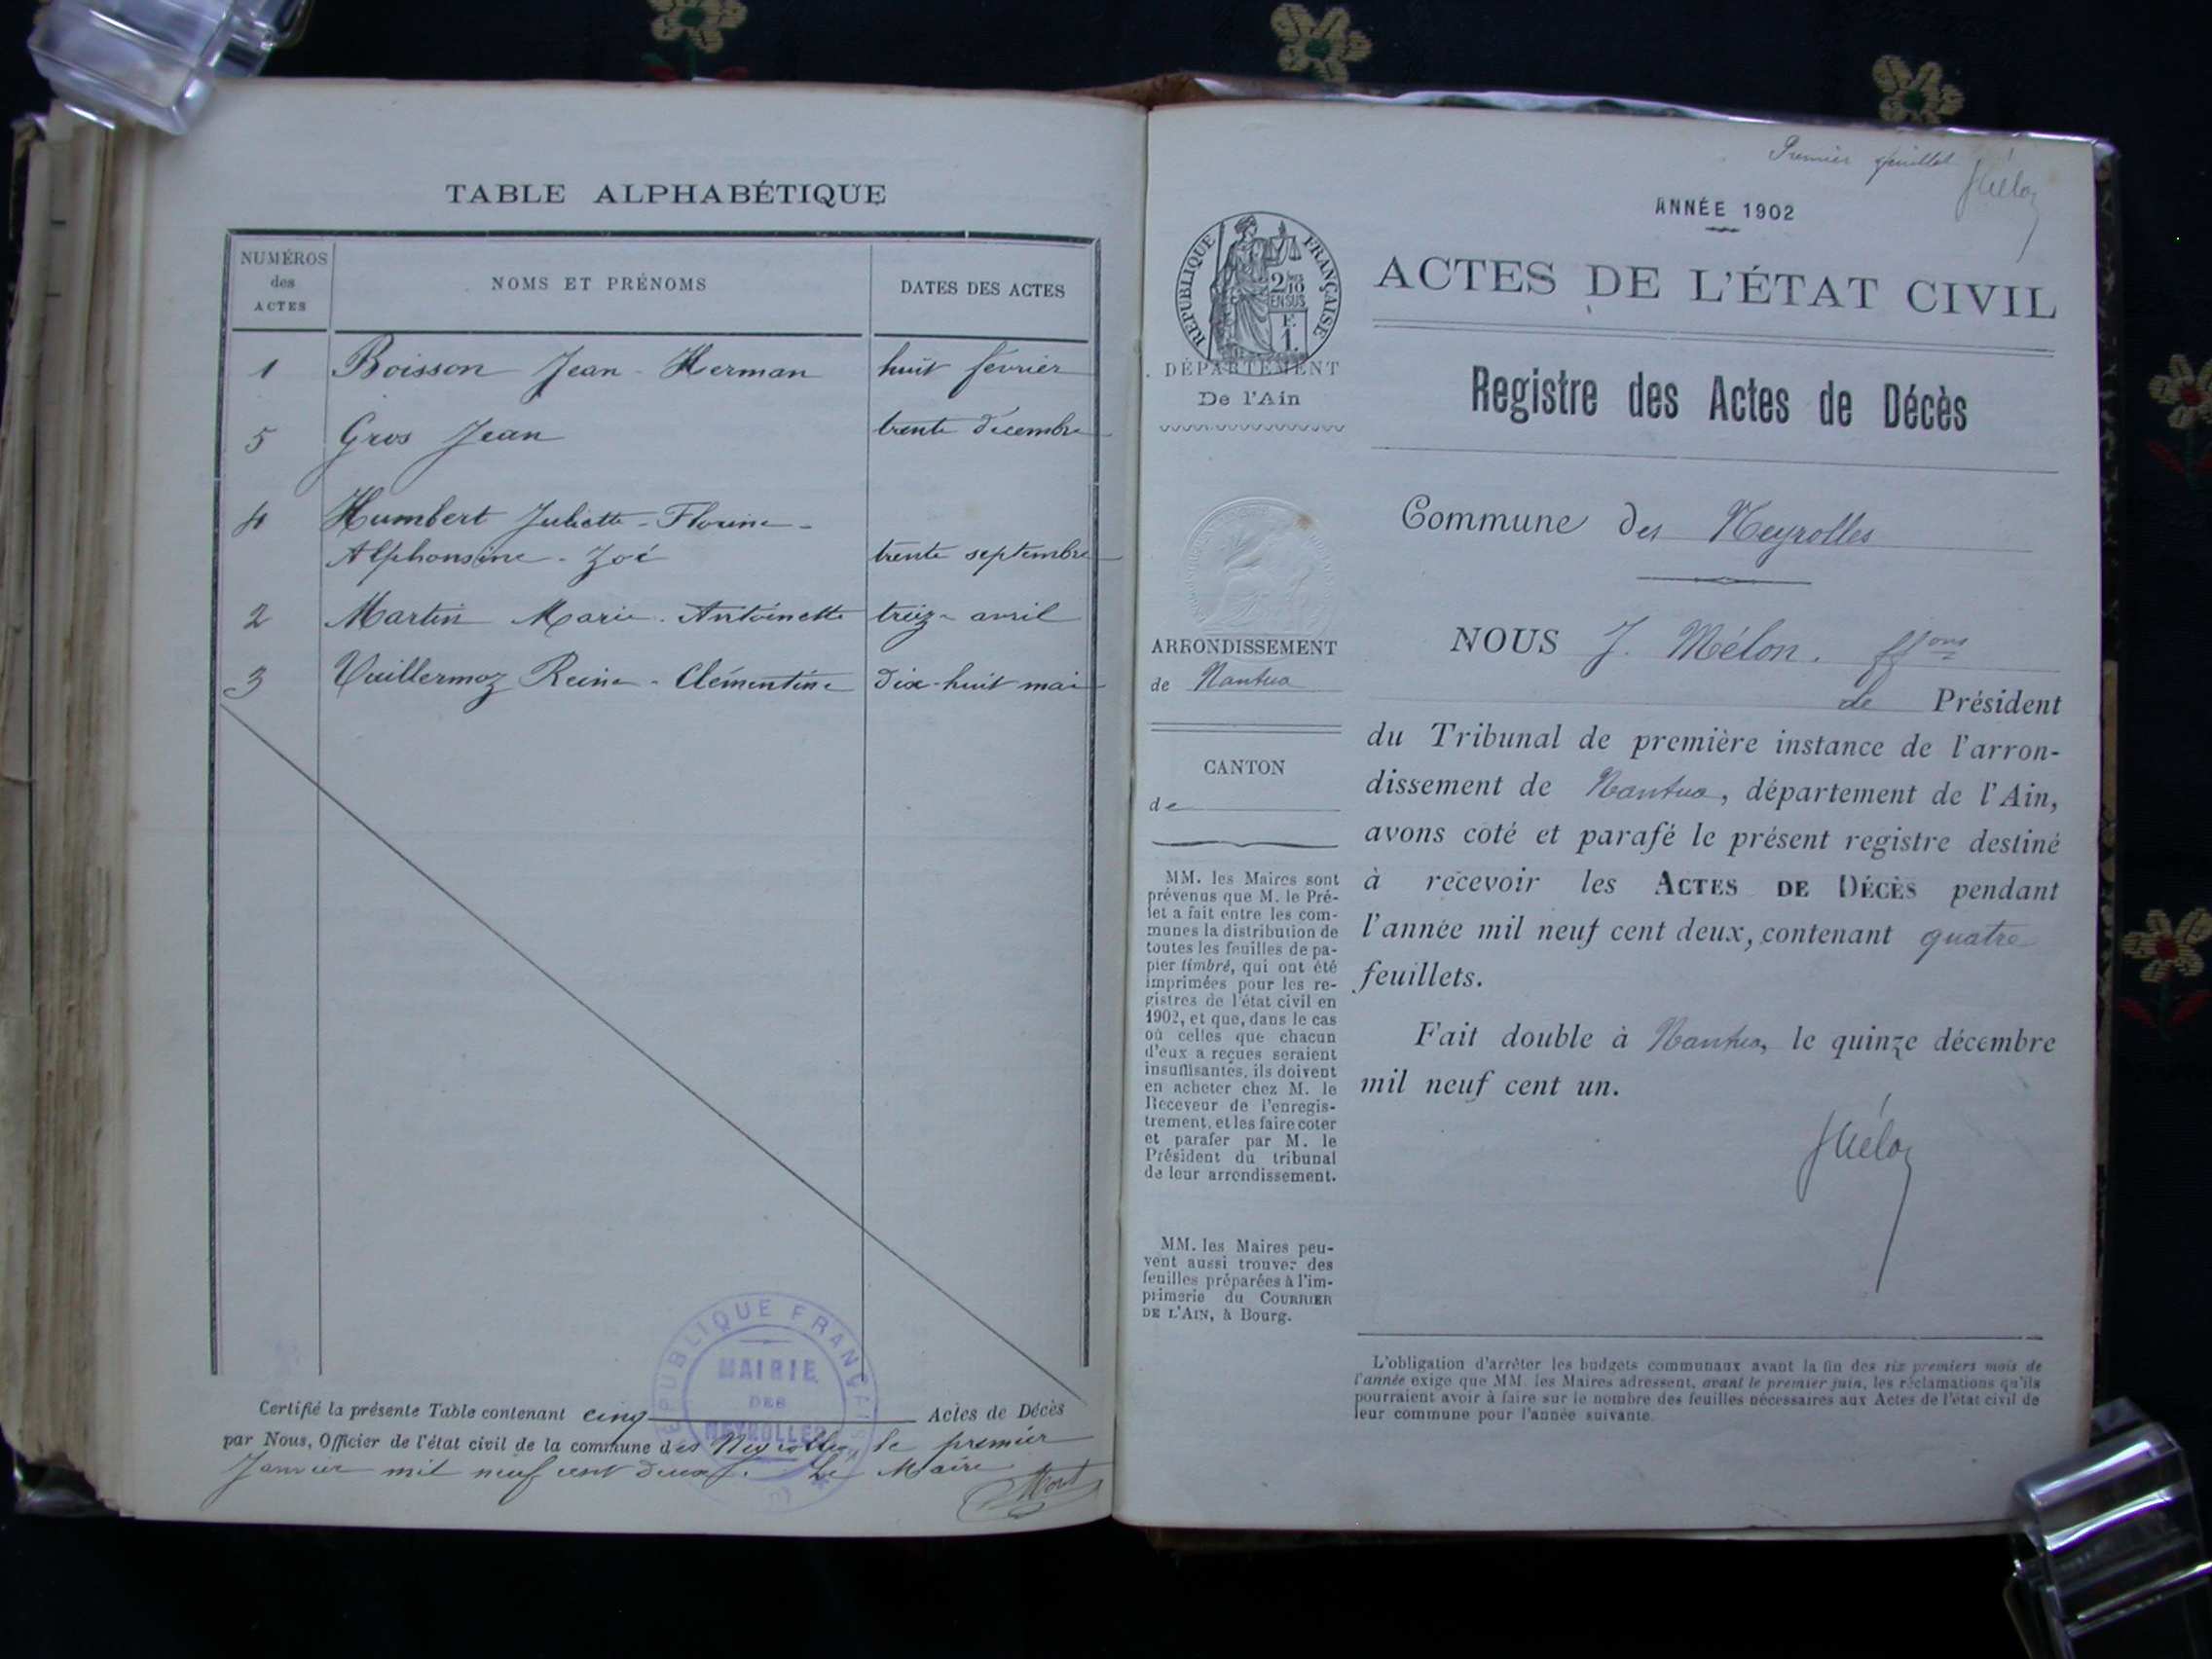 TABLE ALPHABÉTIQUE
NUMÉROS
des
ACTES
NOMS ET PRÉNOMS
DATES DES ACTES
1 Boisson Jean - Herman huit février
5 Gros Jean trente décembre
4 Humbert Juliette - Florine -
Alphonsine - Zoé trente septembre
2 Martin Marie - Antoinette treize avril
3 Vuillermoz Reine - Clémentine dix-huit mai
RÉPUBLIQUE FRANÇAISE
MAIRIE
DES
NEYROLLES
Certifié la présente Table contenant cinq Actes de Décès
par Nous, Officier de l'état civil de la commune des Neyrolles, le premier
Janvier mil neuf cent deux. Le Maire
Premier feuillet
ANNÉE 1902
RÉPUBLIQUE FRANÇAISE
2/10
EN SUS
F.
1.
DÉPARTEMENT
De l'Ain
ARRONDISSEMENT
de Nantua
CANTON
de
MM. les Maires sont
prévenus que M. le Pré-
fet a fait entre les com-
munes la distribution de
toutes les feuilles de pa-
pier timbré, qui ont été
imprimées pour les re-
gistres de l'état civil en
1902, et que, dans le cas
où celles que chacun
d'eux a reçues seraient
insuffisantes, ils doivent
en acheter chez M. le
Receveur de l'enregis-
trement, et les faire coter
et parafer par M. le
Président du tribunal
de leur arrondissement.
MM. les Maires peu-
vent aussi trouver des
feuilles préparées à l'im-
primerie du COURRIER
DE L'AIN, à Bourg.
ACTES DE L'ÉTAT CIVIL
Registre des Actes de Décès
Commune des Neyrolles
NOUS J. Mélon. ffons
de Président
du Tribunal de première instance de l'arron-
dissement de Nantua, département de l'Ain,
avons coté et parafé le présent registre destiné
à recevoir les ACTES DE DÉCÈS pendant
l'année mil neuf cent deux, contenant quatre
feuillets.
Fait double à Nantua, le quinze décembre
mil neuf cent un.
L'obligation d'arrêter les budgets communaux avant la fin des six premiers mois de
l'année exige que MM. les Maires adressent, avant le premier juin, les réclamations qu'ils
pourraient avoir à faire sur le nombre des feuilles nécessaires aux Actes de l'état civil de
leur commune pour l'année suivante.